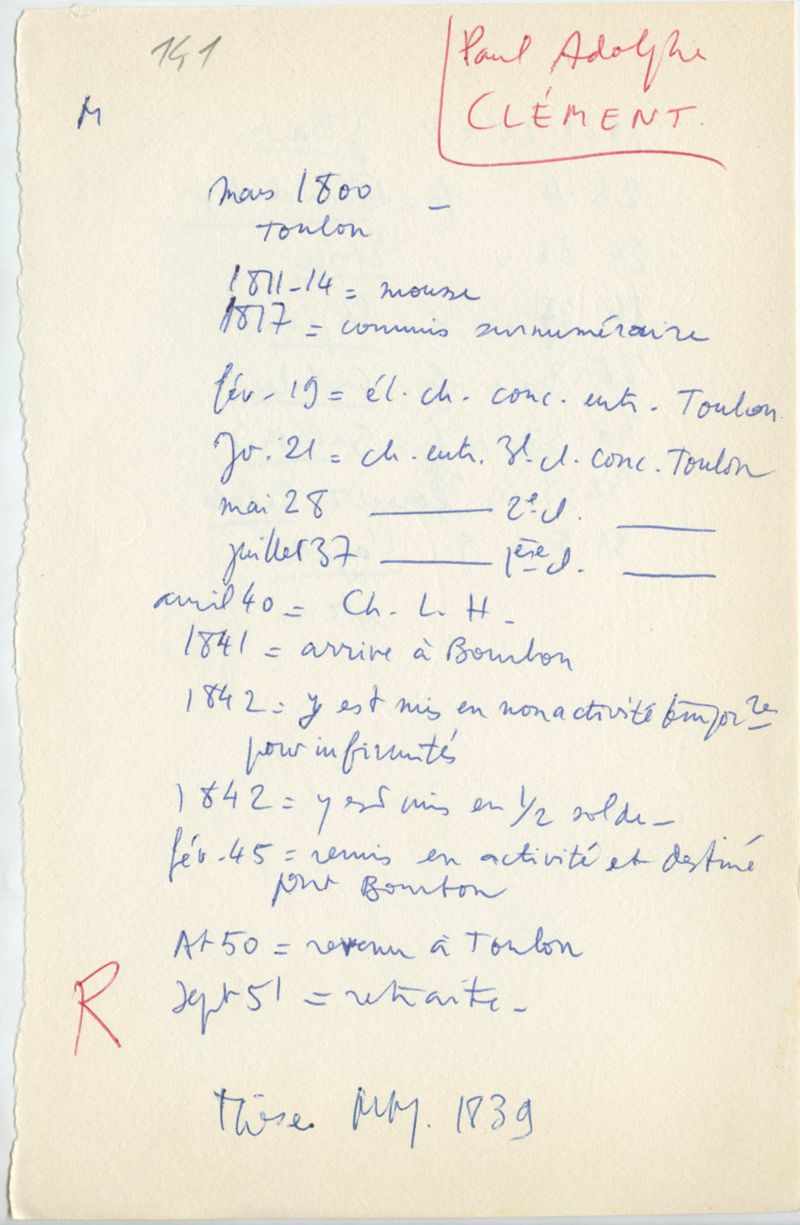 141
Paul Adolphe
CLÉMENT.
M
mars 1800 —
Toulon
1811-14 = mousse
1817 = commis surnuméraire
fév. 19 = él. ch. conc. entr. Toulon.
Jv. 21 = ch. entr. 3e cl. conc. Toulon
mai 28 —— 2e cl. ——
juillet 37 —— 1ère cl. ——
avril 40 = Ch. L. H.
1841 = arrive à Bourbon
1842 = y est mis en nonactivité tempor re
pour infirmités
1842 = y est mis en 1/2 solde —
fév. 45 = remis en activité et destiné
pour Bourbon
At 50 = revenu à Toulon
R
Sept 51 = retraite —
Thèse MM. 1839